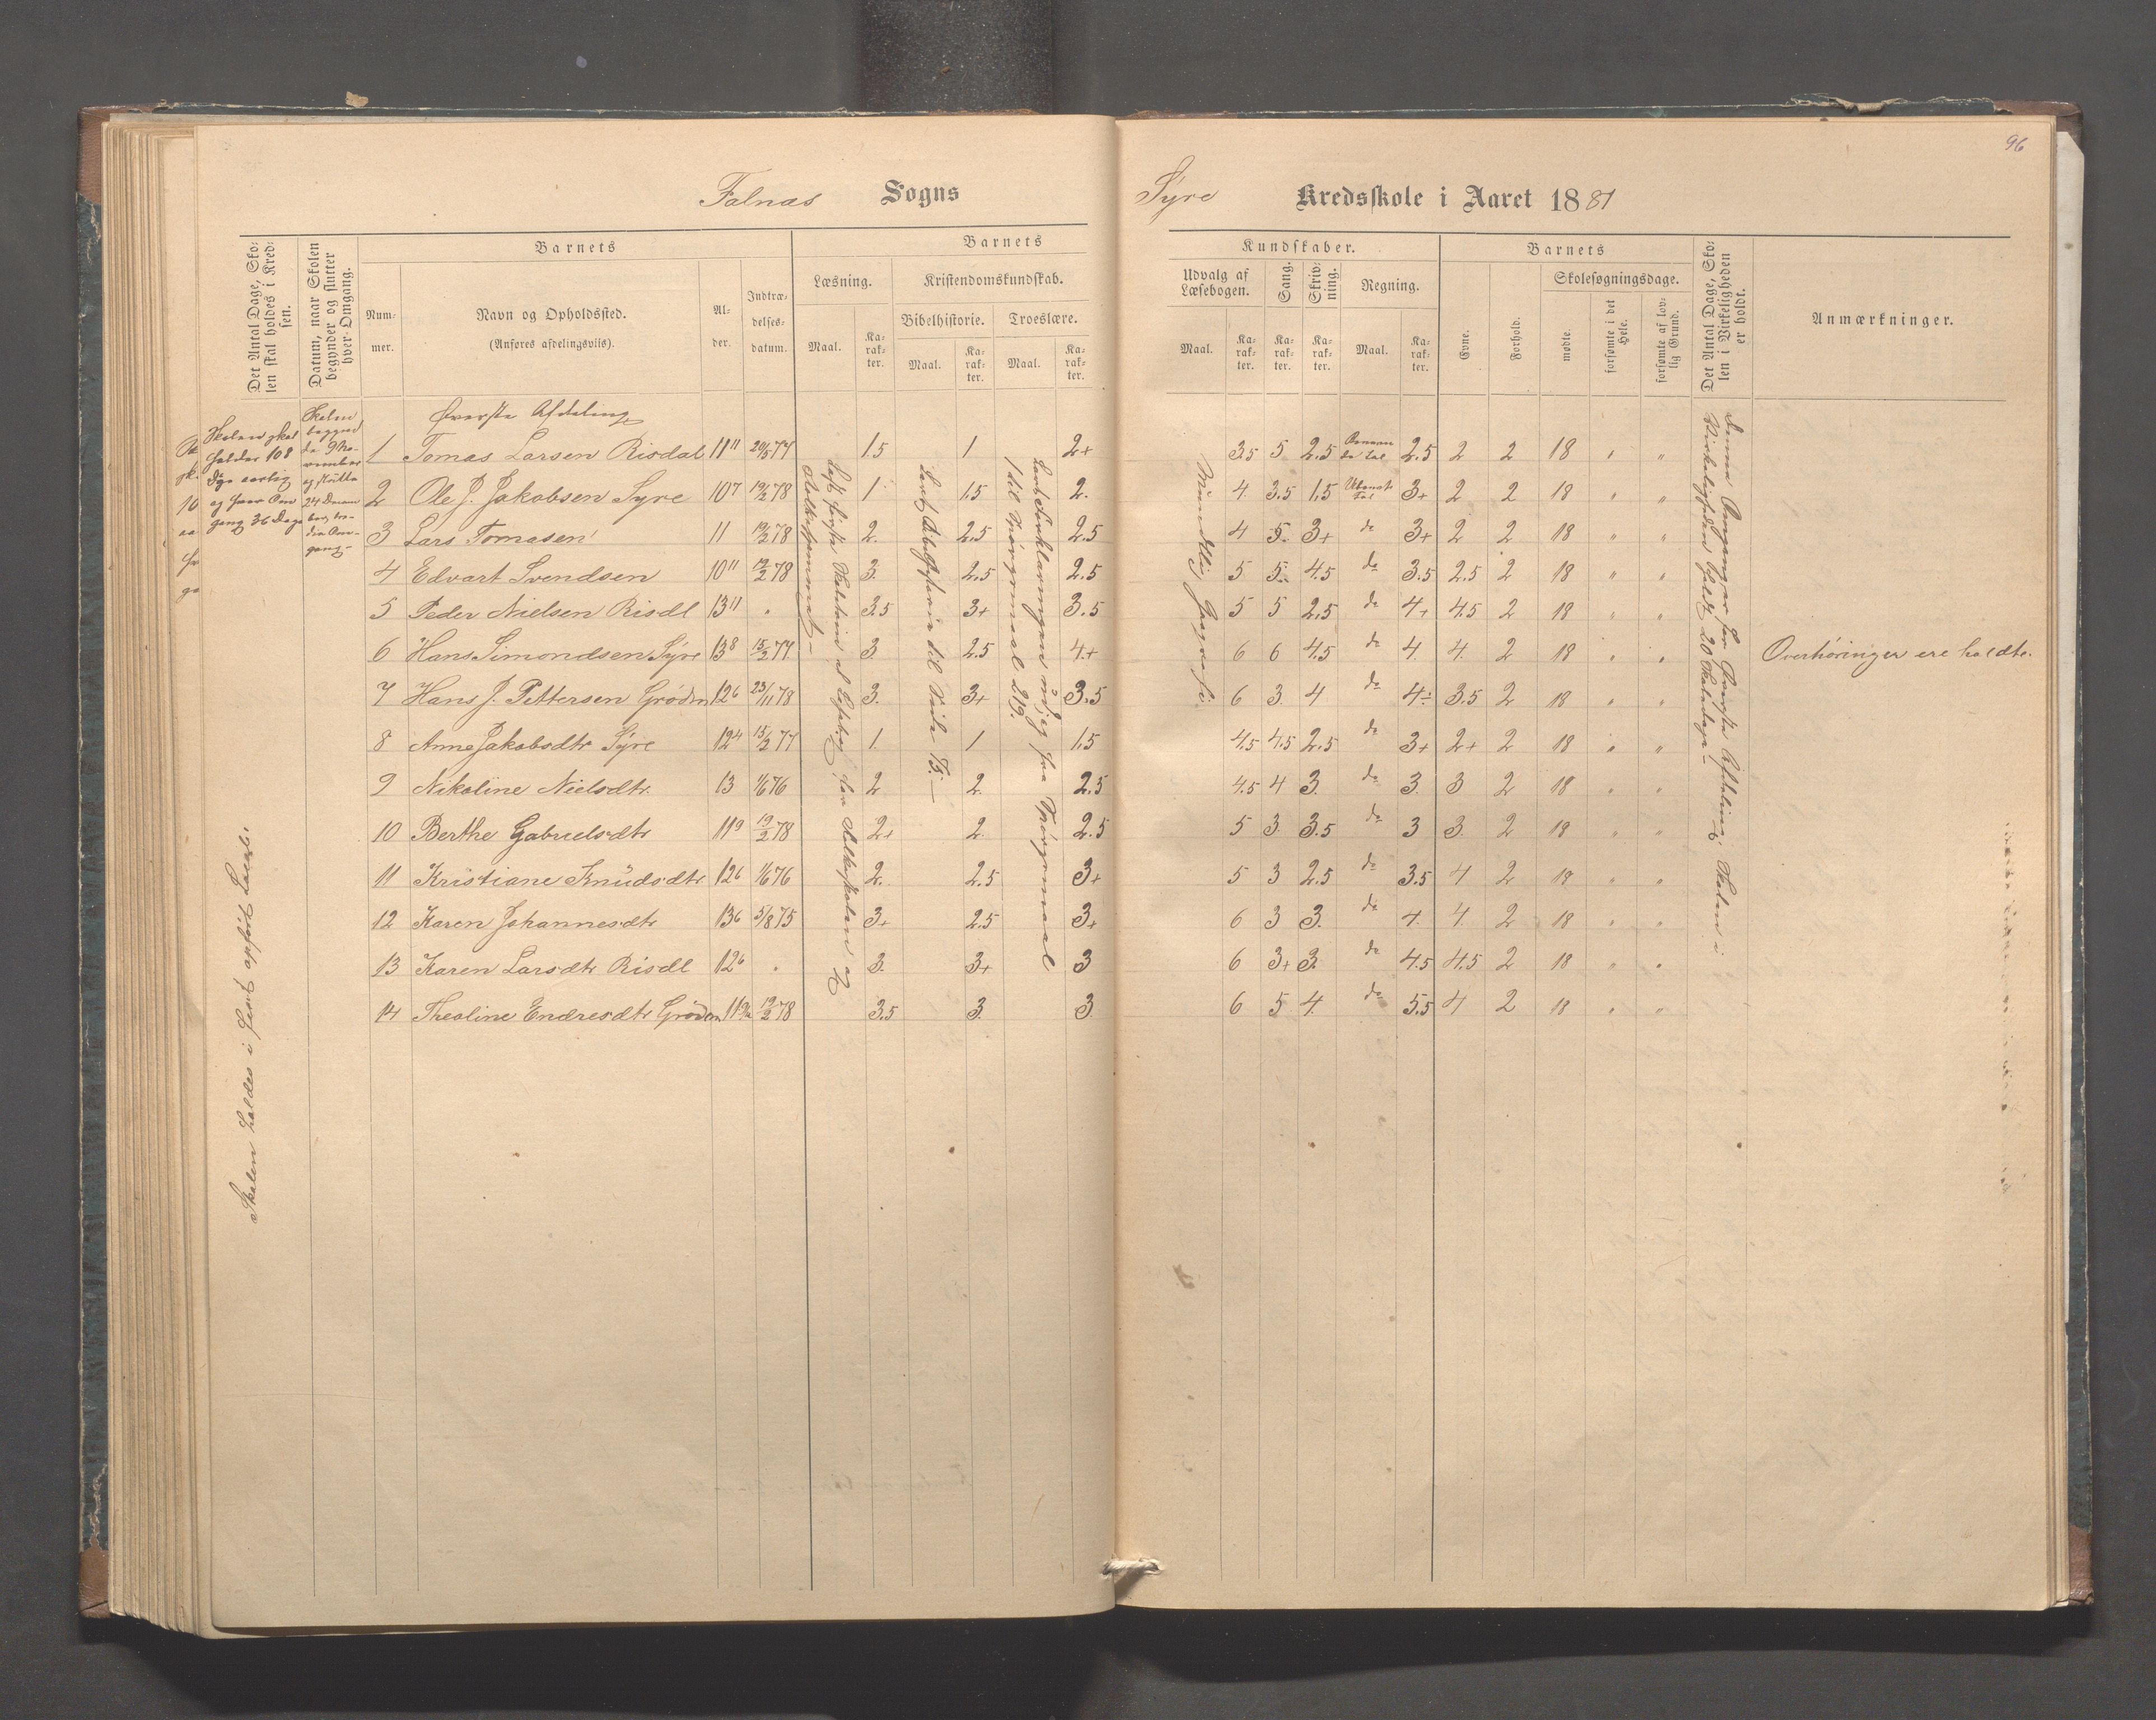 96
Falnæs Sogns
Syre Kredsskole i Aaret 1881
Det Antal Dage, Skolen skal holdes i Kredsen.
Datum, naar Skolen begynder og slutter hver Omgang.
Barnets
Nummer.
Navn og Opholdssted.
(Anføres afdelingsviis).
Alder.
Indtrædelsesdatum.
Barnets
Læsning.
Maal.
Karakter.
Kristendomskundskab.
Bibelhistorie.
Maal.
Karakter.
Troeslære.
Maal.
Karakter.
Kundskaber.
Udvalg af Læsebogen.
Maal.
Karakter.
Sang.
Karakter.
Skrivning.
Karakter.
Regning.
Maal.
Karakter.
Barnets
Evne.
Forhold.
Skolesøgningsdage.
mødte.
forsømte i det Hele.
forsømte af lovlig Grund.
Det Antal Dage, Skolen i Virkeligheden er holdt.
Anmærkninger.
Skolen skal
holdes 108
Dge aarlig
og hver Om
gang 36 Dage
Skolen
begynd
de 9 No-
vember
og slutte
24 Decem
ber, tre-
die Om-
gang
Øverste Afdeling
1 Tomas Larsen Risdal 11 11 20/5 77 1.5 1 2+ 3.5 5 2.5 2.5 2 2 18 " "
2 Ole J. Jakobsen Syre 10 7 19/2 78 1 1.5 2. 4 3.5 1.5 Ubenæt Tal 3+ 2 2 18 " "
3 Lars Tomasen 11 19/2 78 2. 2.5 2.5 4 5. 3+ do 3+ 2 2 18 " "
4 Edvart Svendsen 10 11 19/2 78 3. 2.5 2.5 5 5. 4.5 do 3.5 2.5 2 18 " "
5 Peder Nielsen Risdl 13 11 " 3.5 3+ 3.5 5 5 2.5 do 4+ 4.5 2 18 " "
6 Hans Simondsen Syre 13 8 15/2 77 3. 2.5 4+ 6 6 4.5 do 4. 4. 2 18 " " Overhøringer ere holdte.
7 Hans J. Pettersen Grødm 12 6 23/11 78 3. 3+ 3.5 6 3. 4 do 4÷ 3.5 2 18 " "
8 Anne Jakobsdtr Syre 12 4 15/2 77 1. 1 1.5 4.5 4.5 2.5 do 3+ 2+ 2 18 " "
9 Nikoline Nielsdtr. 13 1/6 76 2 2. 2.5 4.5 4 3. do 3. 3 2 18 " "
10 Berthe Gabrielsdtr 11 9 19/2 78 2+ 2. 2.5 5 3. 3.5 do 3 3. 2 18 " "
11 Kristiane Knudsdtr 12 6 1/6 76 2. 2.5 3+ 5 3 2.5 do 3.5 4 2 18 " "
12 Karen Johannesdtr 13 6 5/8 75 3+ 2.5 3+ 6 3 3. do 4. 4. 2 18 " "
13 Karen Larsdtr Risdl 12 6 " 3. 3+ 3 6 3+ 3. do 4.5 4.5 2 18 " "
14 Theoline Endresdtr Grødm 11 19/2 78 3.5 3. 3 6 5 4. do 5.5 4 2 18 " "
Læst første Skoletrin af Læsebog for Folkeskolen og
Lært Bibelhistorie til Side 75.
Lært Forklaringen udj fra Spørgsmaal
1 til Spørgsmaal 219.
Mundtlig Geografi
Denne Omgang er for Øverste Afdeling, Skolen i
Virkeligheden holdt 20 Skoledage
Skolen holdes i fast opført Locale.